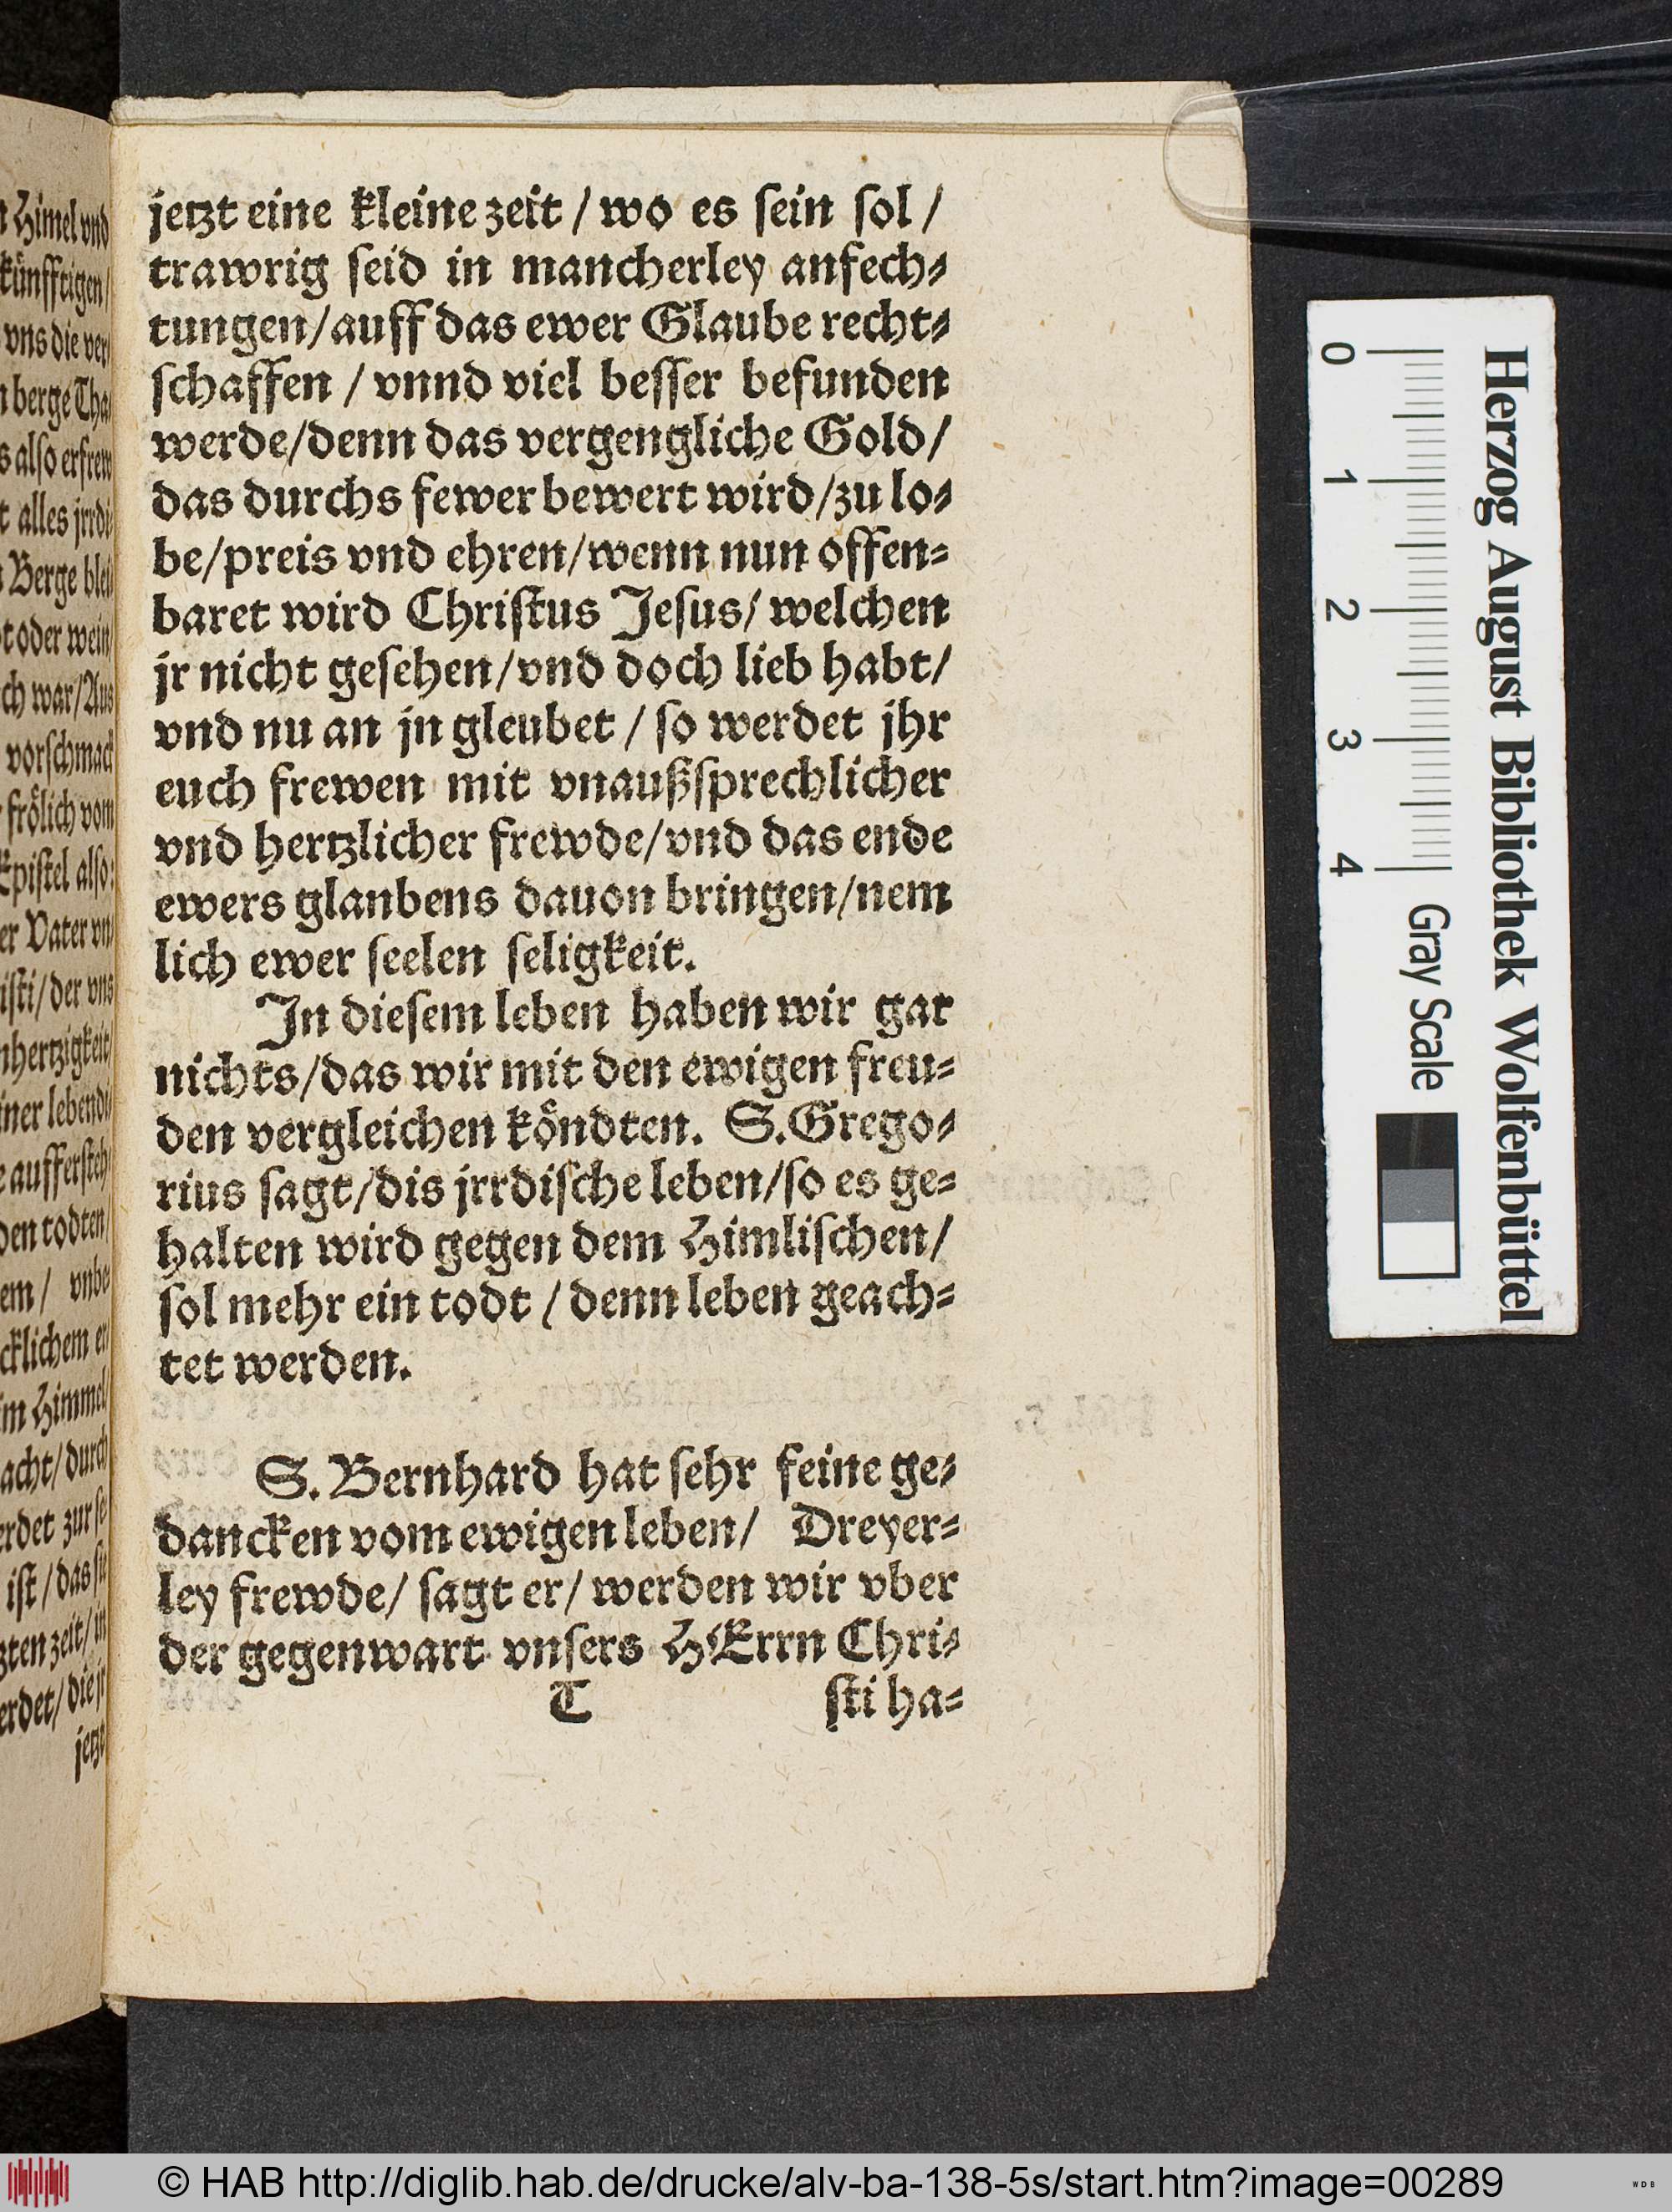 jetzt eine kleine zeit / wo es ſein ſol /
trawrig ſeid in mancherley anfech⸗
tungen/auff das ewer Glaube recht⸗
ſchaffen / vnnd viel beſſer befunden
werde/denn das vergengliche Gold/
das durchs fewer bewert wird/zu lo⸗
be/preis vnd ehren/wenn nun offen⸗
baret wird Chriſtus Jeſus/ welchen
jr nicht geſehen/vnd doch lieb habt/
vnd nu an jn gleubet / ſo werdet jhr
euch frewen mit vnaußſprechlicher
vnd hertzlicher frewde/vnd das ende
ewers glanbens dauon bringen/nem
lich ewer ſeelen ſeligkeit.
In dieſem leben haben wir gar
nichts/das wir mit den ewigen freu⸗
den vergleichen koͤndten. S. Grego⸗
rius ſagt/dis jrrdiſche leben/ſo es ge⸗
halten wird gegen dem Himliſchen/
ſol mehr ein todt / denn leben geach⸗
tet werden.
S. Bernhard hat ſehr feine ge⸗
dancken vom ewigen leben/ Dreyer⸗
ley frewde/ ſagt er/ werden wir vber
der gegenwart vnſers HErrn Chri⸗
T ſti ha⸗
Himel vnd
kuͤnfftigen/
vns die ver
berge Tha
alſo erfrew
alles jrrdi
Berge blei
oder wein
war/Aus
vorſchmack
froͤlich vom
Epiſtel alſo:
Vater vn
der vns
lebendi
aufferſteh
den todten
vnbe
Himmel
durch
zur ſe
iſt / das ſie
zeit/ in
die jr
jetzt
Herzog August Bibliothek Wolfenbüttel
0 1 2 3 4 Gray Scale
© HAB http://diglib.hab.de/drucke/alv-ba-138-5s/start.htm?image=00289
WDB